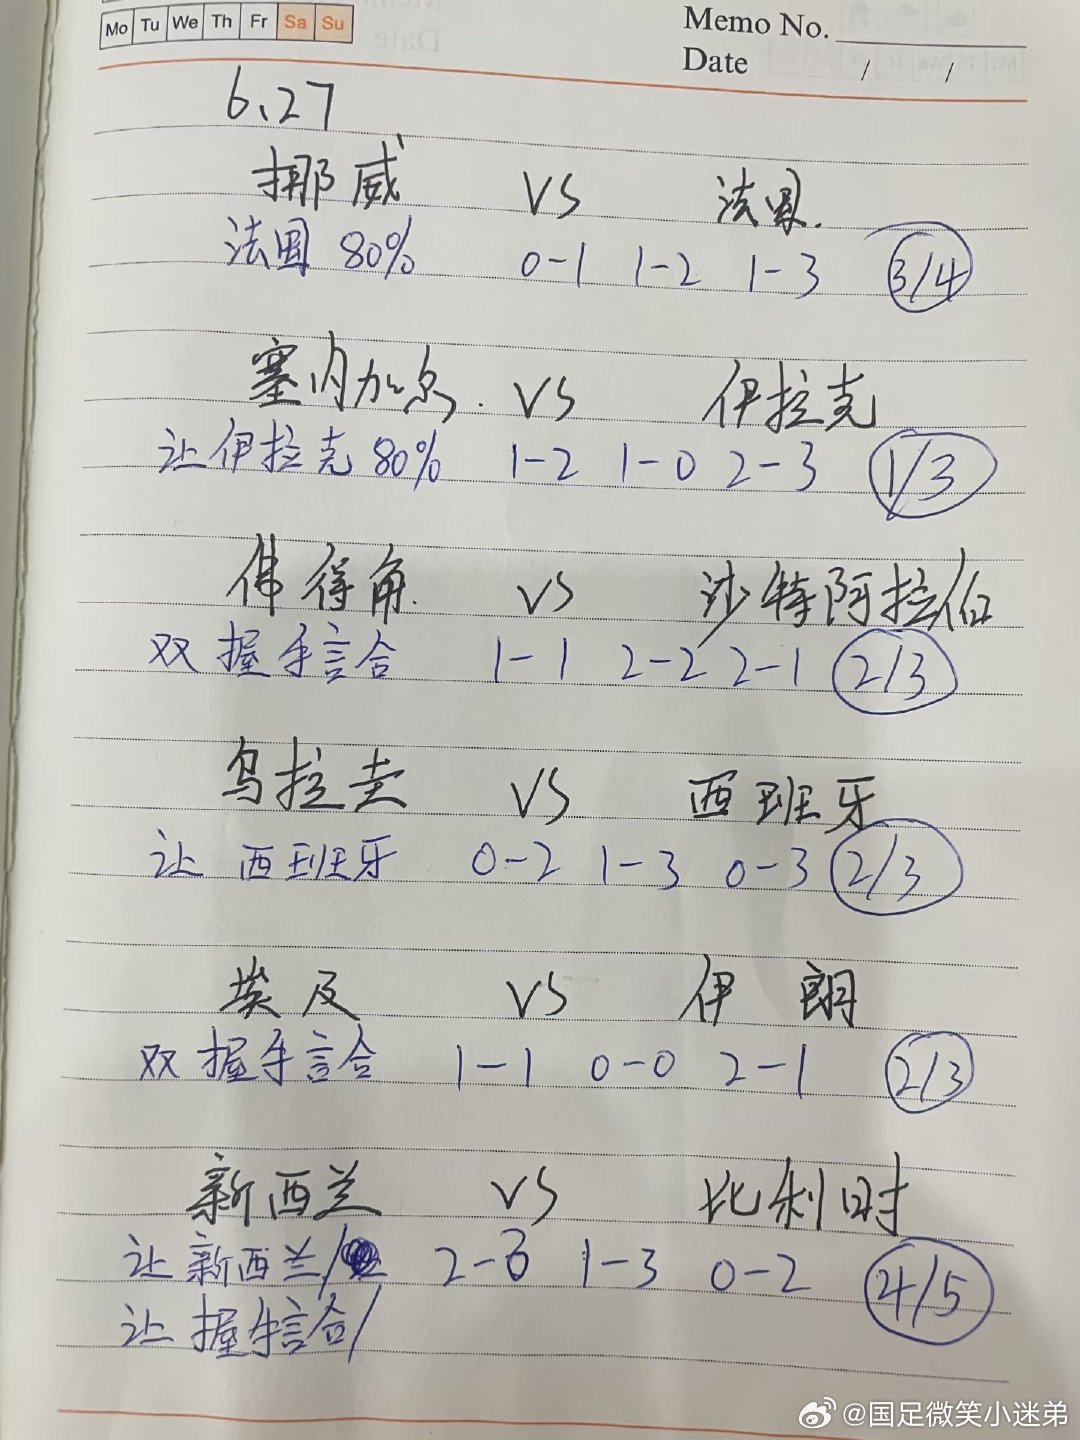 Mo Tu We Th Fr Sa Su
Memo No.
Date / /
6.27
挪威 VS 法国.
法国 80% 0-1 1-2 1-3 3/4
塞内加尔. VS 伊拉克
让伊拉克 80% 1-2 1-0 2-3 1/3
佛得角. VS 沙特阿拉伯
双握手言合 1-1 2-2 2-1 2/3
乌拉圭 VS 西班牙
让 西班牙 0-2 1-3 0-3 2/3
埃及 VS 伊朗
双握手言合 1-1 0-0 2-1 2/3
新西兰 VS 比利时
让新西兰/ 2-3 1-3 0-2 4/5
让握手言合/
@国足微笑小迷弟